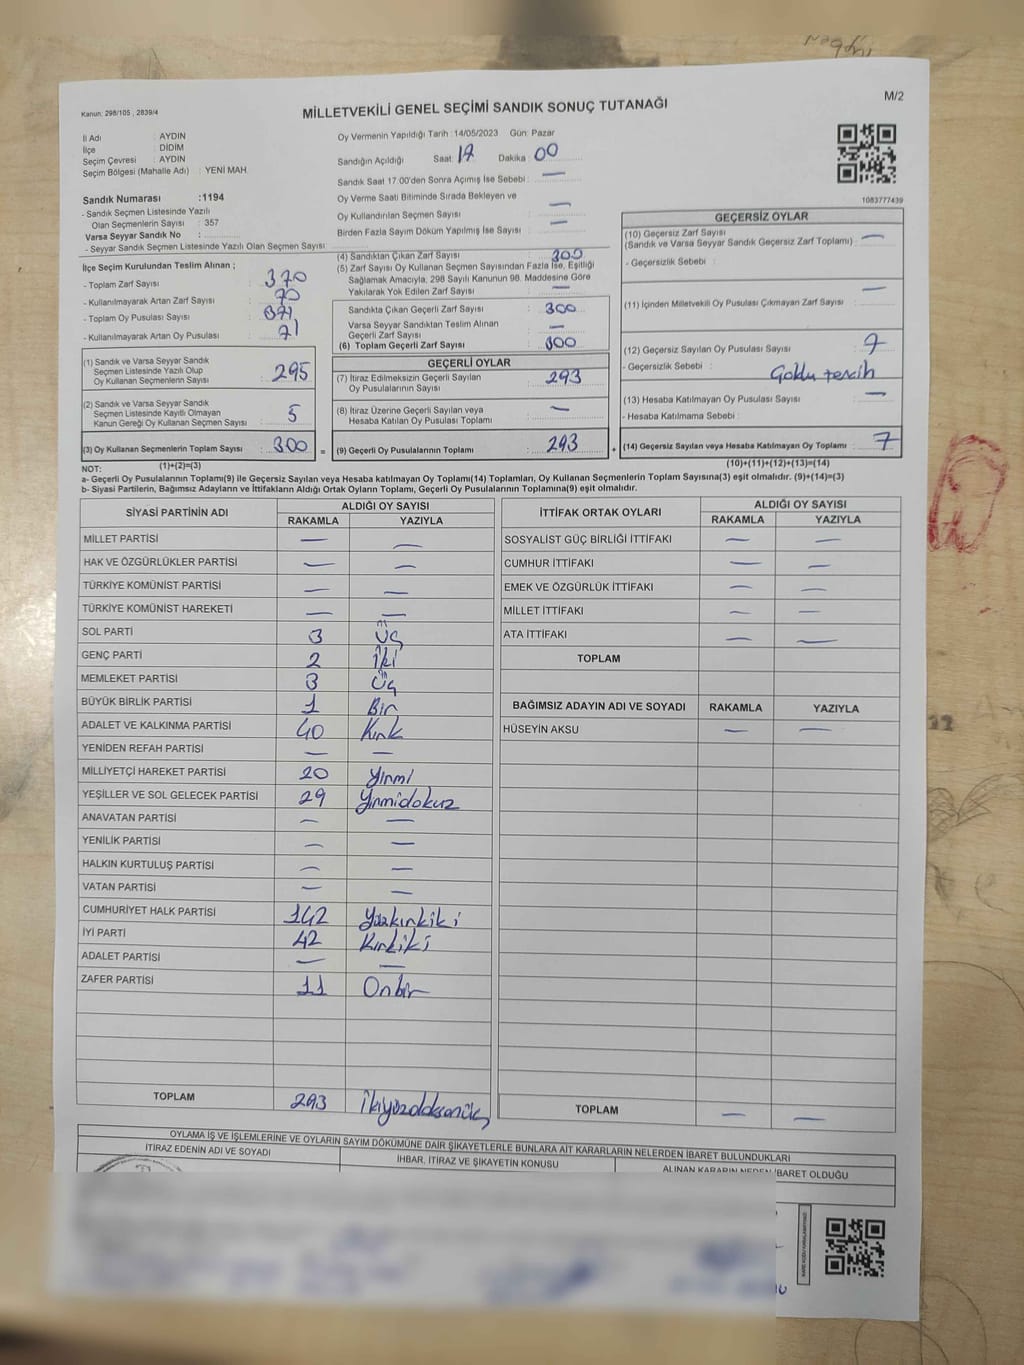 Kanun: 298/105 , 2839/4
MİLLETVEKİLİ GENEL SEÇİMİ SANDIK SONUÇ TUTANAĞI
M/2
İl Adı : AYDIN
İlçe : DİDİM
Seçim Çevresi : AYDIN
Seçim Bölgesi (Mahalle Adı) : YENİ MAH.
Oy Vermenin Yapıldığı Tarih : 14/05/2023 Gün: Pazar
Sandığın Açıldığı Saat: 17 Dakika : 00
Sandık Saat 17.00'den Sonra Açımış İse Sebebi : —
Oy Verme Saati Bitiminde Sırada Bekleyen ve
Oy Kullandırılan Seçmen Sayısı : —
Birden Fazla Sayım Döküm Yapılmış İse Sayısı : —
1083777439
Sandık Numarası :1194
- Sandık Seçmen Listesinde Yazılı
Olan Seçmenlerin Sayısı : 357
Varsa Seyyar Sandık No :
- Seyyar Sandık Seçmen Listesinde Yazılı Olan Seçmen Sayısı:
İlçe Seçim Kurulundan Teslim Alınan ;
- Toplam Zarf Sayısı : 370
- Kullanılmayarak Artan Zarf Sayısı : 70
- Toplam Oy Pusulası Sayısı : 371
- Kullanılmayarak Artan Oy Pusulası : 71
(1) Sandık ve Varsa Seyyar Sandık
Seçmen Listesinde Yazılı Olup
Oy Kullanan Seçmenlerin Sayısı : 295
(2) Sandık ve Varsa Seyyar Sandık
Seçmen Listesinde Kayıtlı Olmayan
Kanun Gereği Oy Kullanan Seçmen Sayısı : 5
(3) Oy Kullanan Seçmenlerin Toplam Sayısı : 300 =
(1)+(2)=(3)
(4) Sandıktan Çıkan Zarf Sayısı : 300
(5) Zarf Sayısı Oy Kullanan Seçmen Sayısından Fazla İse, Eşitliği
Sağlamak Amacıyla, 298 Sayılı Kanunun 98. Maddesine Göre
Yakılarak Yok Edilen Zarf Sayısı : —
Sandıkta Çıkan Geçerli Zarf Sayısı : 300
Varsa Seyyar Sandıktan Teslim Alınan
Geçerli Zarf Sayısı : —
(6) Toplam Geçerli Zarf Sayısı : 300
GEÇERLİ OYLAR
(7) İtiraz Edilmeksizin Geçerli Sayılan
Oy Pusulalarının Sayısı : 293
(8) İtiraz Üzerine Geçerli Sayılan veya
Hesaba Katılan Oy Pusulası Toplamı : —
(9) Geçerli Oy Pusulalarının Toplamı : 293 +
GEÇERSİZ OYLAR
(10) Geçersiz Zarf Sayısı
(Sandık ve Varsa Seyyar Sandık Geçersiz Zarf Toplamı) : —
- Geçersizlik Sebebi :
(11) İçinden Milletvekili Oy Pusulası Çıkmayan Zarf Sayısı : —
(12) Geçersiz Sayılan Oy Pusulası Sayısı : 7
- Geçersizlik Sebebi : Çoklu tercih
(13) Hesaba Katılmayan Oy Pusulası Sayısı : —
- Hesaba Katılmama Sebebi :
(14) Geçersiz Sayılan veya Hesaba Katılmayan Oy Toplamı : 7
(10)+(11)+(12)+(13)=(14)
NOT:
a- Geçerli Oy Pusulalarının Toplamı(9) ile Geçersiz Sayılan veya Hesaba Katılmayan Oy Toplamı(14) Toplamları, Oy Kullanan Seçmenlerin Toplam Sayısına(3) eşit olmalıdır. (9)+(14)=(3)
b- Siyasi Partilerin, Bağımsız Adayların ve İttifakların Aldığı Ortak Oyların Toplamı, Geçerli Oy Pusulalarının Toplamına(9) eşit olmalıdır.
SİYASİ PARTİNİN ADI ALDIĞI OY SAYISI
RAKAMLA YAZIYLA
MİLLET PARTİSİ — —
HAK VE ÖZGÜRLÜKLER PARTİSİ — —
TÜRKİYE KOMÜNİST PARTİSİ — —
TÜRKİYE KOMÜNİST HAREKETİ — —
SOL PARTİ 3 Üç
GENÇ PARTİ 2 İki
MEMLEKET PARTİSİ 3 Üç
BÜYÜK BİRLİK PARTİSİ 1 Bir
ADALET VE KALKINMA PARTİSİ 40 Kırk
YENİDEN REFAH PARTİSİ — —
MİLLİYETÇİ HAREKET PARTİSİ 20 Yirmi
YEŞİLLER VE SOL GELECEK PARTİSİ 29 Yirmidokuz
ANAVATAN PARTİSİ — —
YENİLİK PARTİSİ — —
HALKIN KURTULUŞ PARTİSİ — —
VATAN PARTİSİ — —
CUMHURİYET HALK PARTİSİ 142 Yüzkırkiki
İYİ PARTİ 42 Kırkiki
ADALET PARTİSİ — —
ZAFER PARTİSİ 11 Onbir
TOPLAM 293 İkiyüzdoksanüç
İTTİFAK ORTAK OYLARI ALDIĞI OY SAYISI
RAKAMLA YAZIYLA
SOSYALİST GÜÇ BİRLİĞİ İTTİFAKI — —
CUMHUR İTTİFAKI — —
EMEK VE ÖZGÜRLÜK İTTİFAKI — —
MİLLET İTTİFAKI — —
ATA İTTİFAKI — —
TOPLAM
BAĞIMSIZ ADAYIN ADI VE SOYADI RAKAMLA YAZIYLA
HÜSEYİN AKSU — —
TOPLAM — —
OYLAMA İŞ VE İŞLEMLERİNE VE OYLARIN SAYIM DÖKÜMÜNE DAİR ŞİKAYETLERLE BUNLARA AİT KARARLARIN NELERDEN İBARET BULUNDUKLARI
İTİRAZ EDENİN ADI VE SOYADI
İHBAR, İTİRAZ VE ŞİKAYETİN KONUSU
ALINAN KARARIN NEDEN İBARET OLDUĞU